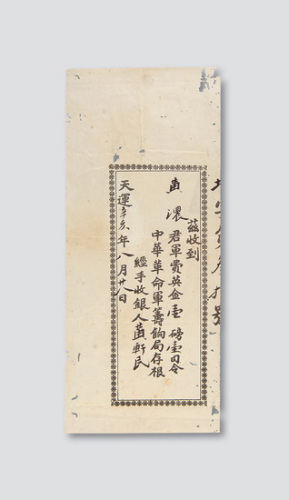 茲收到
濃君軍費英金壹磅壹司令
中華革命軍籌餉局存根
經手收銀人黃新民
天運辛亥年八月廿八日